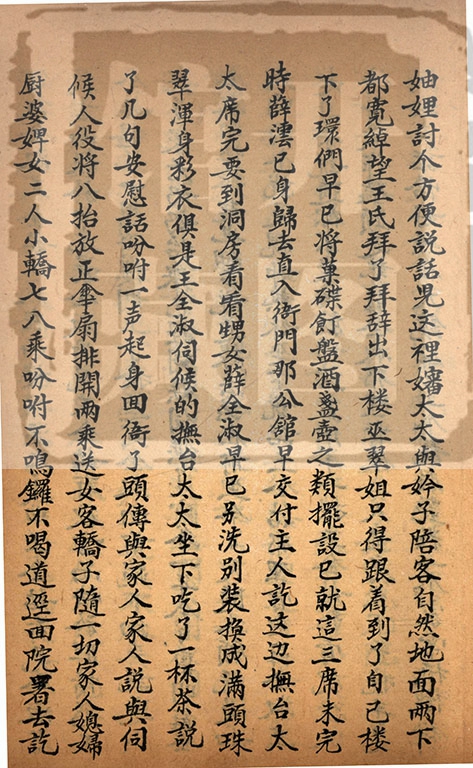 妯娌討个方便説話児这裡嬸太太與妗子陪客自然地面兩下
都寛綽望王氏拜了拜辞出下楼巫翠姐只得跟着到了自己楼
下了環們早已將菓碟飣盤酒盞壺之類擺設已就這三席未完
時薛澐已身歸去直入衙門那公舘早交付主人訖这边撫台太
太席完要到洞房看看甥女薛全淑早已另洗別装換成滿頭珠
翠渾身彩衣俱是王全淑伺候的撫台太太坐下吃了一杯茶説
了几句安慰話吩咐一声起身囬衙了頭傳與家人家人説與伺
候人役将八抬放正傘扇排開兩乘送女客轎子隨一切家人媳婦
厨婆婢女二人小轎七八乘吩咐不鳴鑼不喝道逕囬院署去訖